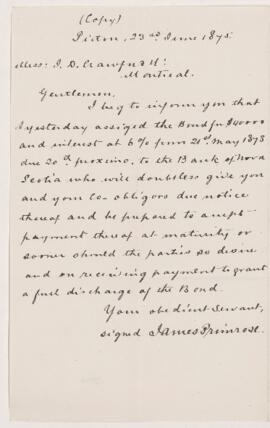 (Copy)
Pictou, 23rd June 1875.
Mess: J. D. Crawford &
Montreal.
Gentlemen,
I beg to inform you that
I yesterday assigned the Bond for $40000
and interest at 6% from 21st May 1873
due 20th proximo, to the Bank of Nova
Scotia who will doubtless give you
and your Co-obligors due notice
thereof and be prepared to accept
payment thereof at maturity or
sooner should the parties so desire
and on receiving payment to grant
a full discharge of the Bond.
Your obedient servant,
signed James Primrose.